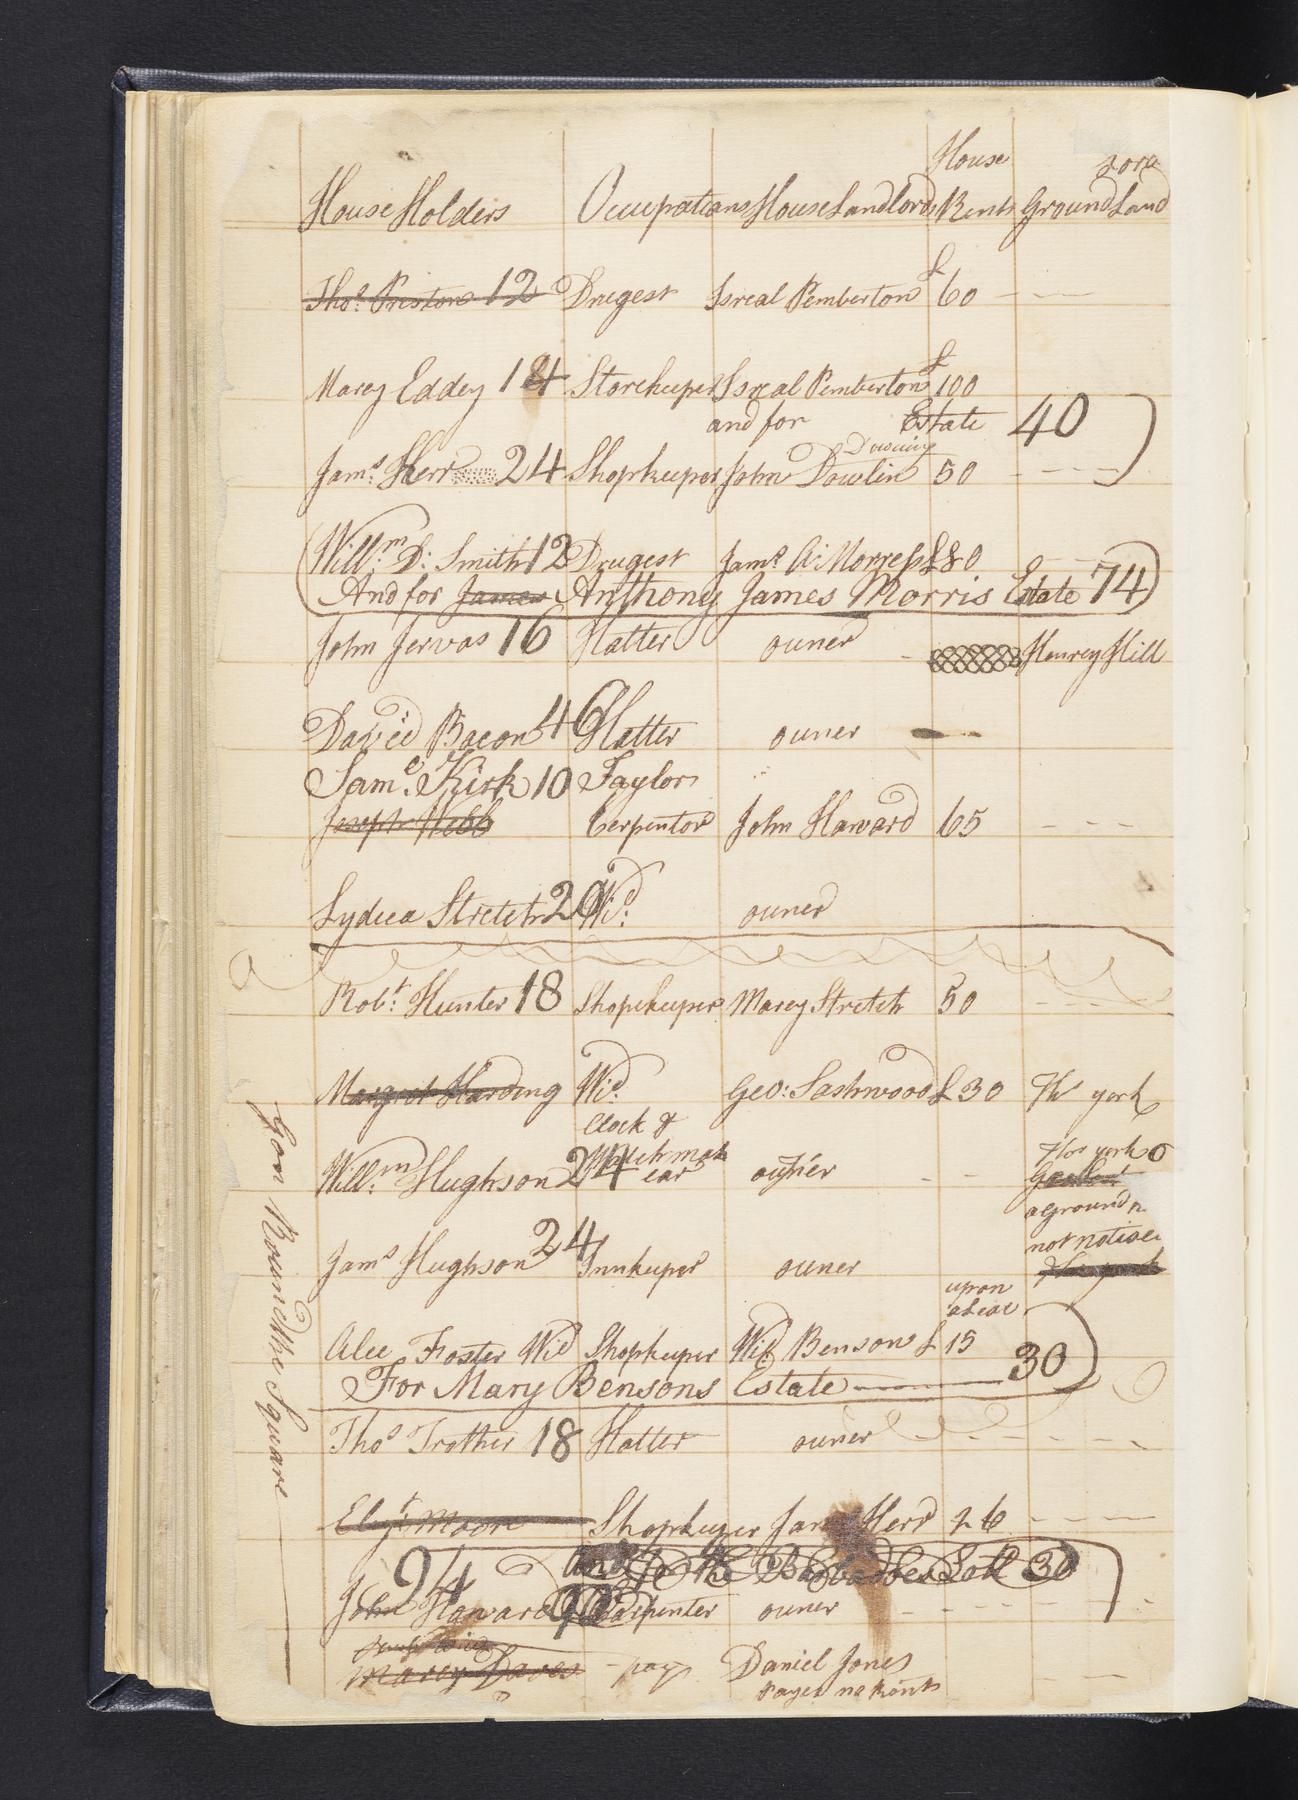 House
Lord
House Holders Occupations House Landlords Rents Ground Land
Thos. Priston 12 Drugest Isreal Pemberton £60
Marey Eddey 184 Storekeeper Isreal Pemberton £100
and for Estate 40
Downing
Jams. Kerr 24 Shopkeeper John Dowlin 50
Willm. D: Smith 12 Drugest Jams. A: Morress £80
And for James Anthony James Morris Estate 74
John Jervas 16 Hatter owner Henrey Hill
David Bacon 46 Hatter owner
Saml. Kirk 10 Taylor
Joseph Webb Cerpentor John Haward 65
Lydiea Stretch 20 Wid: owner
Robt. Hunter 18 Shopekeeper Marey Stretch 50
Margret Harding Wid. Geo: Sashwood £30 Thos york
Clock &
Watchmak
Willm. Hughson 24 ear owner Thos york
aground
not notised
Jams Hughson 24 Innkeeper owner
upon
aLear
Alee Foster Wid Shopkeeper Wid Benson £15
For Mary Bensons Estate 30
Thos Trother 18 Hatter owner
Elizt Moore Shopkeeper Jams Kerr 26
and for the Barbadoes Lott 30
John Haward 24 Carpenter owner
Marey Daves pays Daniel Jones
Payes no Rents
Gon Round the Square